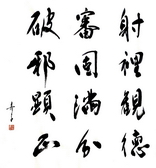 射裡觀德
審固滿分
破邪顕正